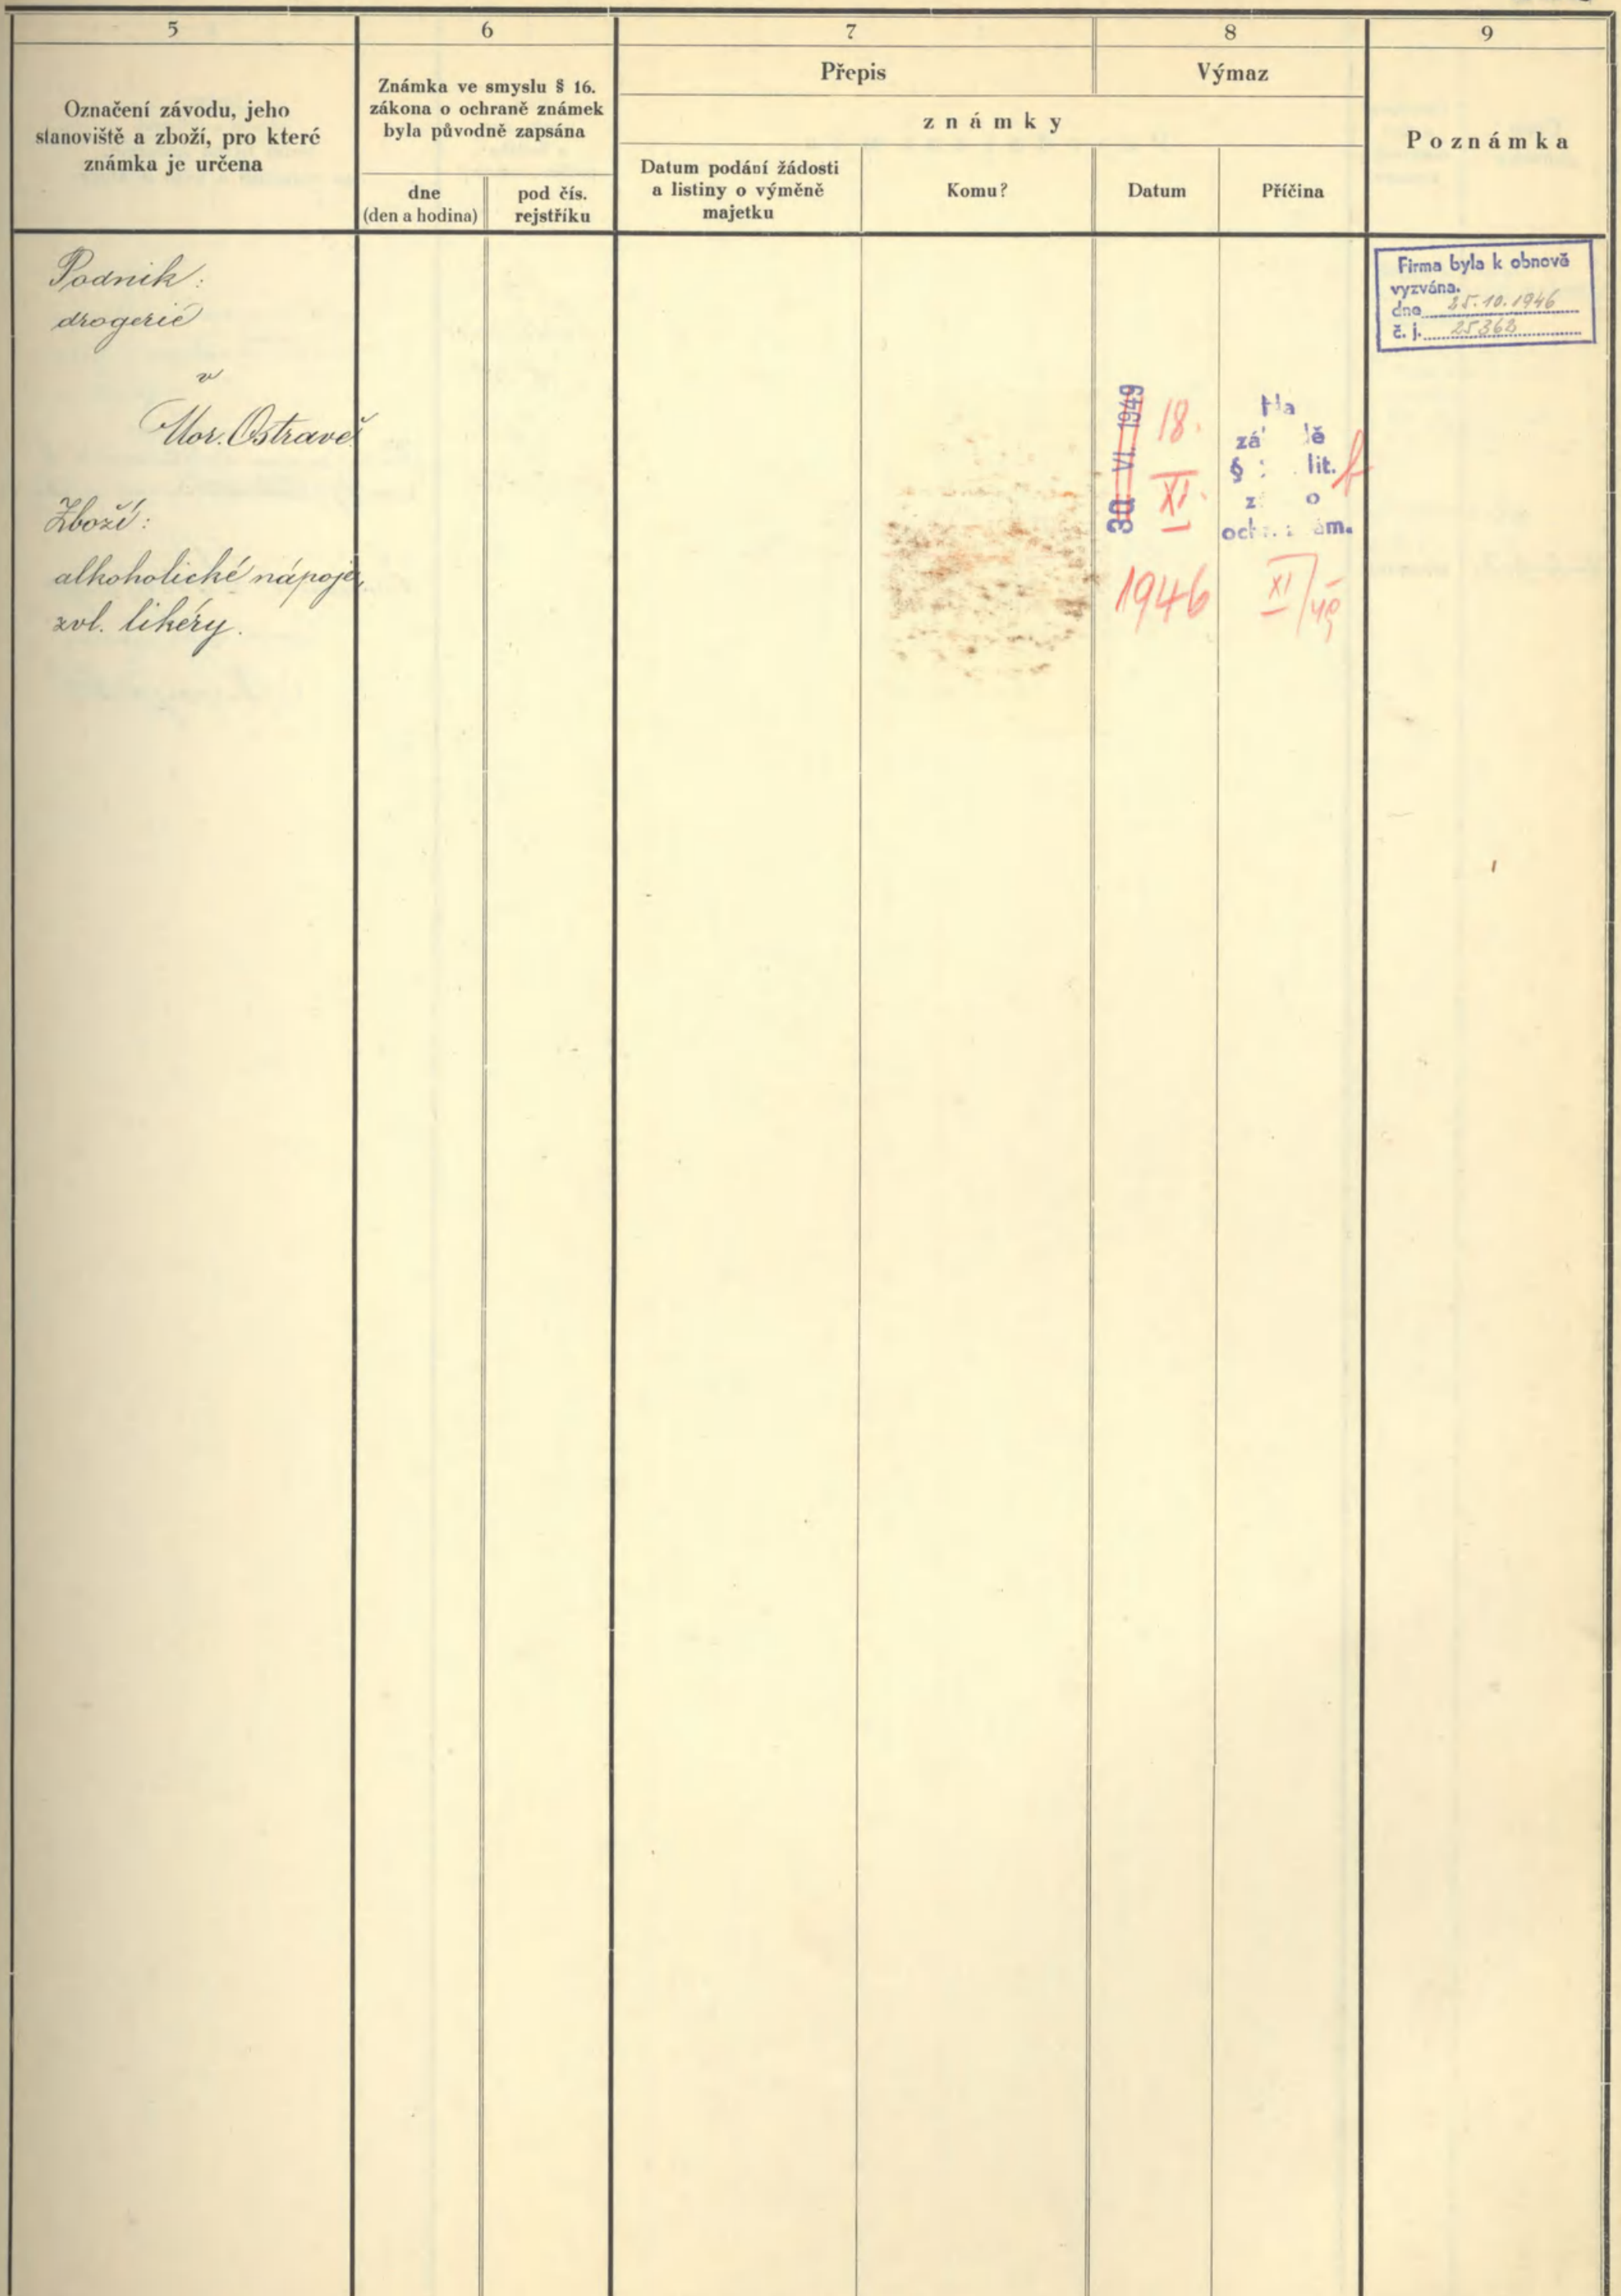 5
6
7
8
9
Označení závodu, jeho
stanoviště a zboží, pro které
známka je určena
Známka ve smyslu § 16.
zákona o ochraně známek
byla původně zapsána
dne
(den a hodina)
pod čís.
rejstříku
Přepis
Výmaz
známky
Datum podání žádosti
a listiny o výměně
majetku
Komu?
Datum
Příčina
Poznámka
Podnik:
drogerie
v
Mor. Ostravě
Zboží:
alkoholické nápoje,
zvl. likéry.
30. VI. 1949
18.
XI.
1946
lit. f
o
XI/49
Firma byla k obnově
vyzvána.
dne 25.10.1946
č. j. 25362